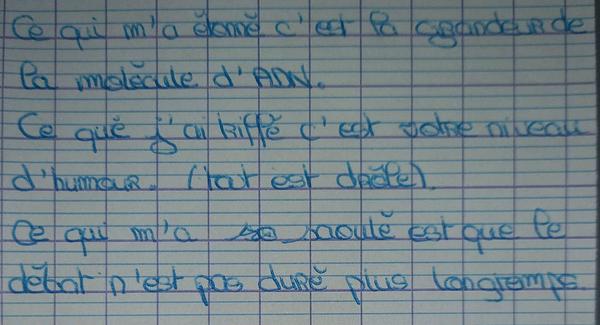 Ce qui m'a étonné c'est la grandeur de
la molécule d'ADN.
Ce que j'ai kiffé c'est votre niveau
d'humour. (tout est drôle).
Ce qui m'a saoulé est que le
débat n'est pas duré plus longtemps.